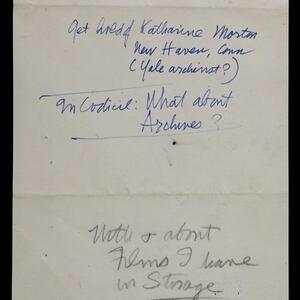 Get hold of Katharine Morton
New Haven, Conn
(Yale archivist?)
In Codicil: What about
Archives?
Note & about
Films I have
in Storage